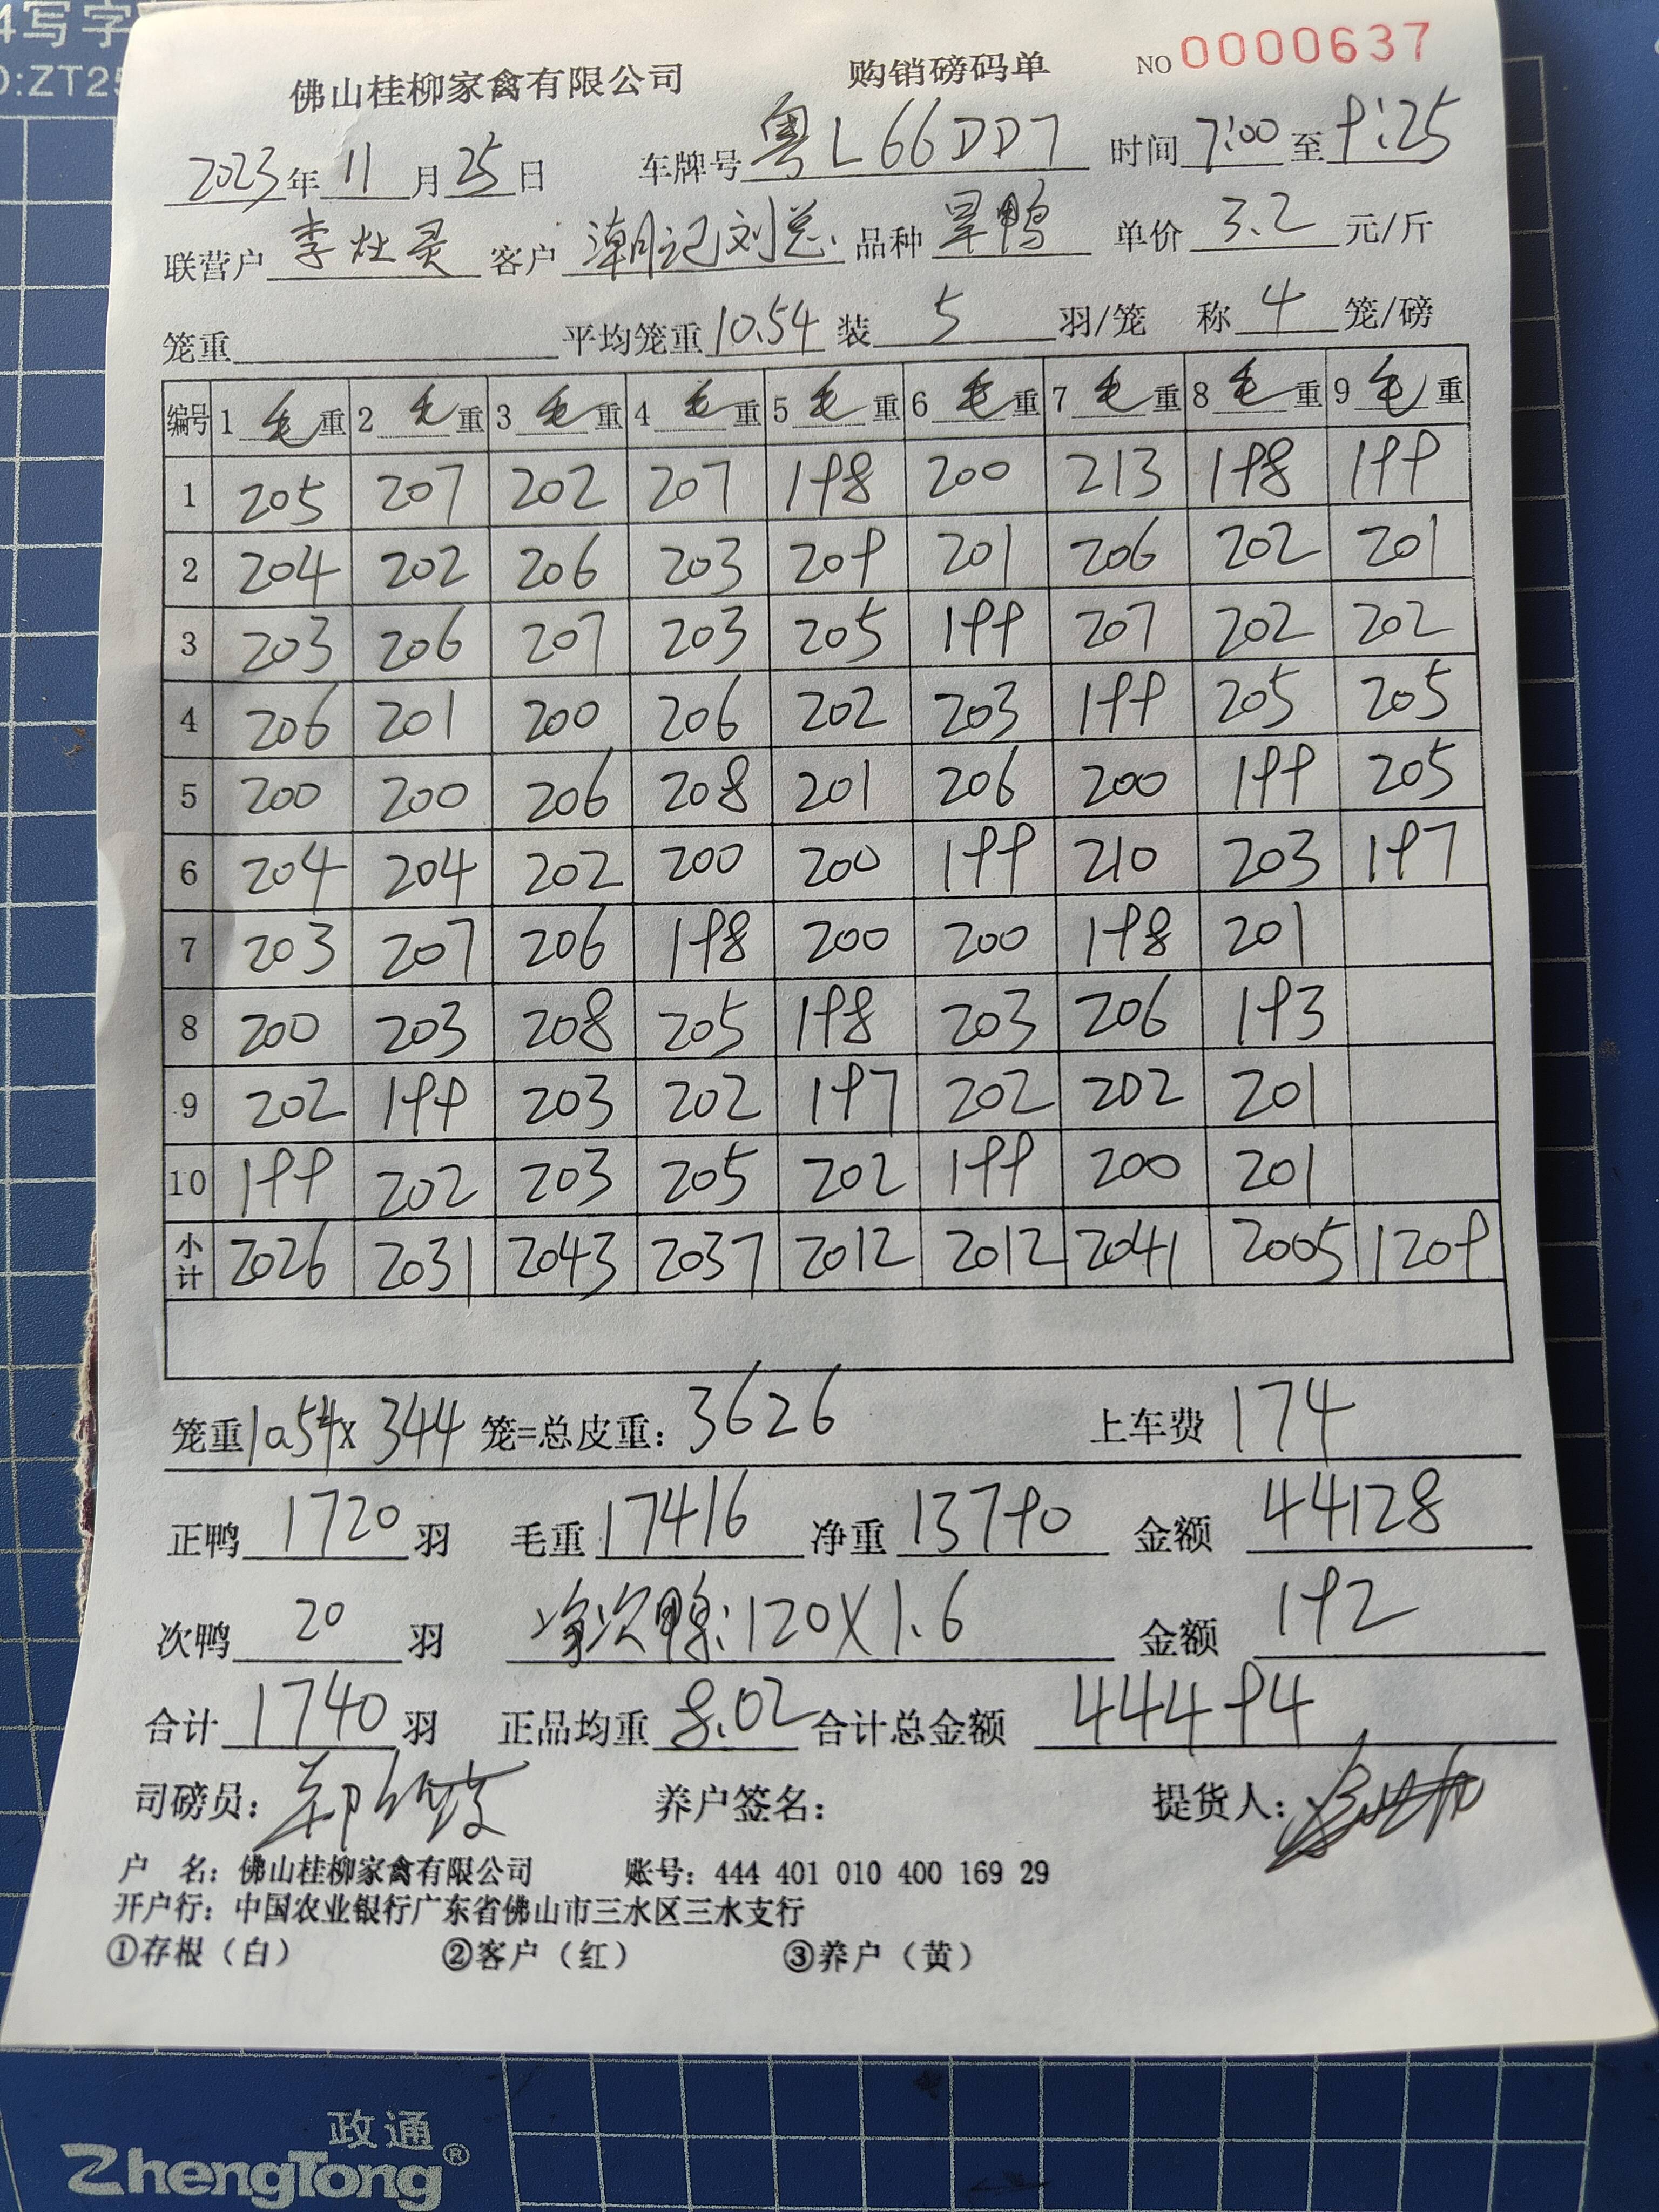 4写字
D:ZT25
佛山桂柳家禽有限公司 购销磅码单 NO 0000637
2023年11月25日 车牌号粤L66DD7 时间7:00至9:25
联营户李灶灵 客户潮记刘总 品种旱鸭 单价3.2元/斤
笼重 平均笼重10.54装5羽/笼 称4笼/磅
编号 1毛重 2毛重 3毛重 4毛重 5毛重 6毛重 7毛重 8毛重 9毛重
1 205 207 202 207 198 200 213 198 199
2 204 202 206 203 209 201 206 202 201
3 203 206 207 203 205 199 207 202 202
4 206 201 200 206 202 203 199 205 205
5 200 200 206 208 201 206 200 199 205
6 204 204 202 200 200 199 210 203 197
7 203 207 206 198 200 200 198 201
8 200 203 208 205 198 203 206 193
9 202 199 203 202 197 202 202 201
10 199 202 203 205 202 199 200 201
小计 2026 2031 2043 2037 2012 2012 2041 2005 1209
笼重10.54x344笼=总皮重：3626 上车费174
正鸭1720羽 毛重17416 净重13790 金额44128
次鸭20羽 净次鸭:120X1.6 金额192
合计1740羽 正品均重8.02合计总金额44494
司磅员： 养户签名： 提货人：
户 名：佛山桂柳家禽有限公司 账号：444 401 010 400 169 29
开户行：中国农业银行广东省佛山市三水区三水支行
①存根（白） ②客户（红） ③养户（黄）
政通
ZhengTong®